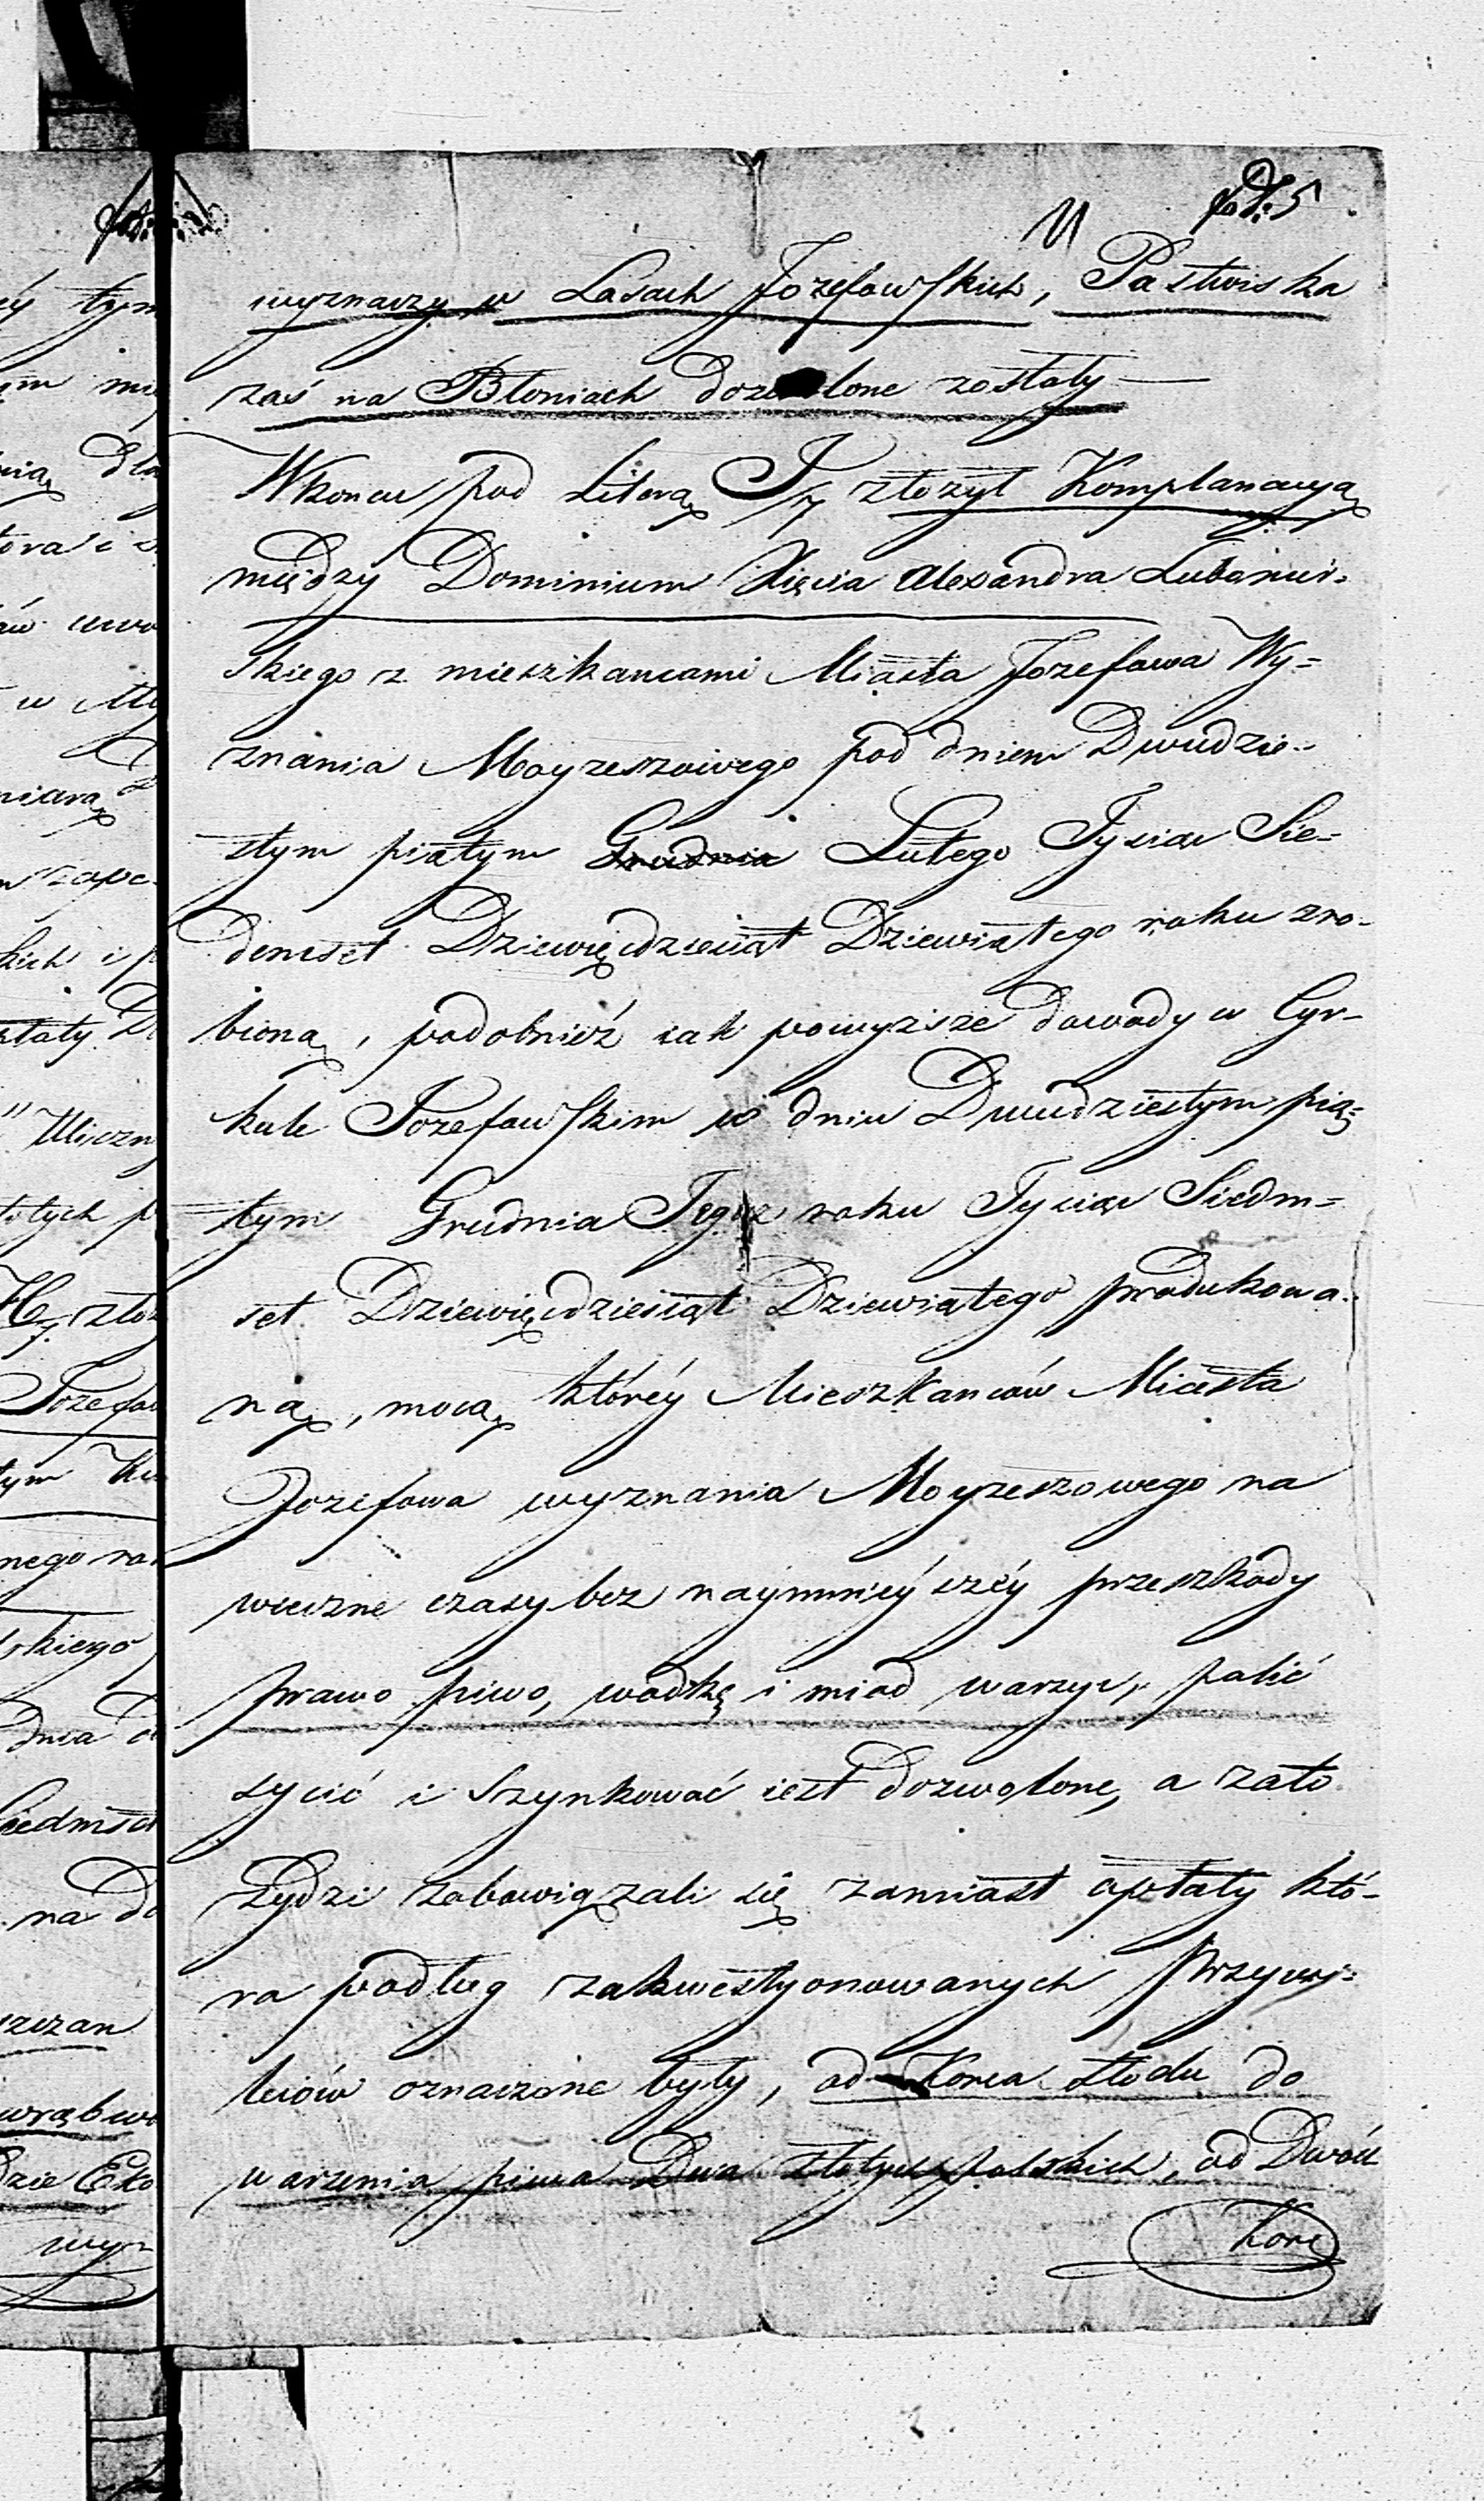 fol: 5
wyznaczy w Lasach Jozefowskich, Pastwiska
zaś na Błoniach dozwolone zostały —
Wkoncu pod Literą J. złozył Komplanacyą
między Dominium Xięcia Alexandra Lubomir-
skiego z mieszkancami Miasta Jozefowa Wy=
znania Moyzeszowego pod dniem Dwudzie-
stym piątym Grudnia Lutego Tysiąc Sie-
demset Dziewięćdziesiąt Dziewiątego roku zro-
bioną, podobnież iak powyzsze dowody w Cyr-
kule Jozefowskim w dniu Dwudziestym pią=
tym Grudnia Tegoż roku Tysiąc Siedm=
set Dziewięćdziesiąt Dziewiątego produkowa-
ną, mocą któréy Mieszkanców Miasta
Jozefowa wyznania Moyzeszowego na
wieczne czasy bez naymnieyszéy przeszkody
prawo piwo, wodkę i miod warzyc, palić
sycić i szynkować iest dozwolone, a zato
Zydzi zobowiązali się zamiast opłaty któ-
ra podług zakwestyonowanych Przywi=
leiów oznaczone były, od Korca słodu do
warzenia piwa Dwa złotych polskich, od Dwóch
Korc
éy tym
dla
szape-
stały
Uliczn
złotych
H złoż
Jozefow
tym
nego
skiego
Dnia
Siedmset
na
szczan
wrąb
Eko
wyz